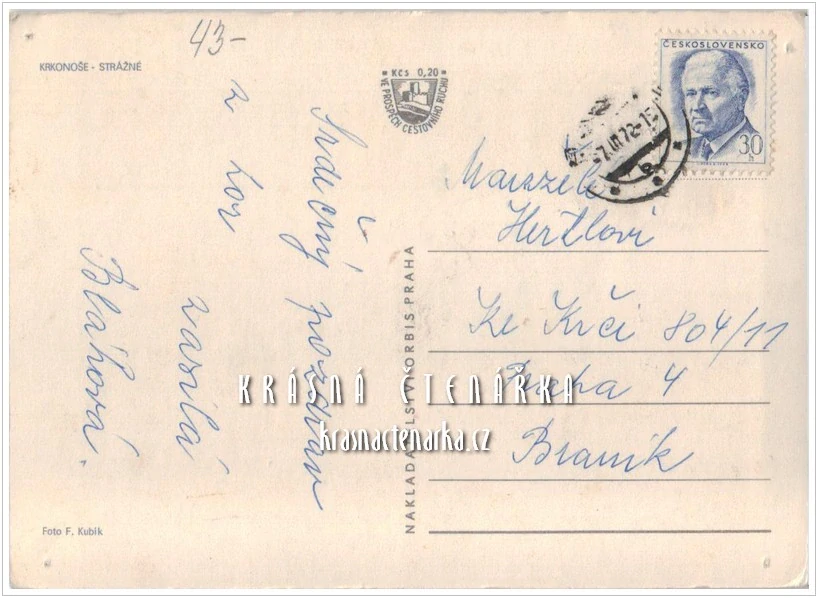 43-
KRKONOŠE - STRÁŽNÉ
KČS 0,20
VE PROSPĚCH CESTOVNÍHO RUCHU
ČESKOSLOVENSKO
30
h
Srdečný pozdrav
z hor
zasílá
Bláhová.
NAKLADATELSTVÍ ORBIS PRAHA
Manželé
Hertlovi
Ke Krči 804/11
Praha 4
Braník
KRÁSNÁ ČTENÁŘKA
krasnactenarka.cz
Foto F. Kubík